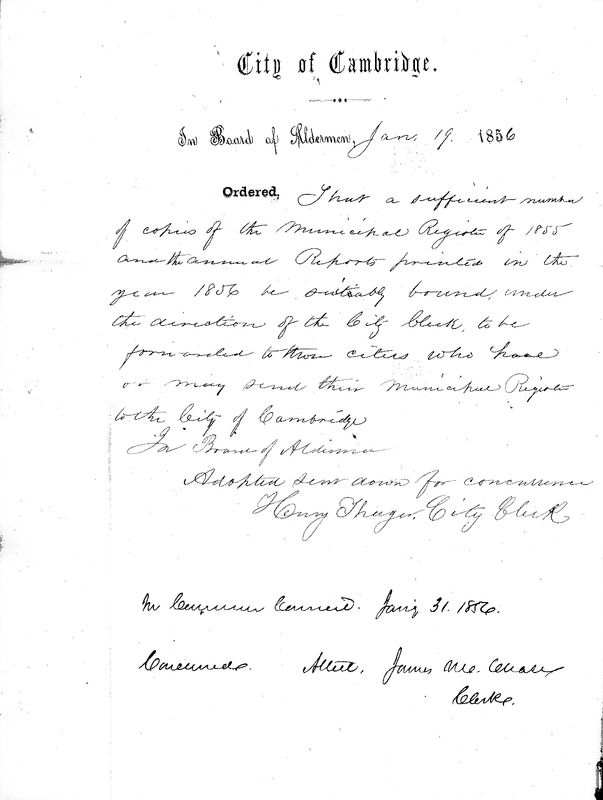 City of Cambridge.
In Board of Aldermen, Jan. 19. 1856
Ordered, That a sufficient number
of copies of the Municipal Register of 1855
and the annual Reports printed in the
year 1856 be suitably bound, under
the direction of the City Clerk, to be
forwarded to those cities who have
or may send their Municipal Register
to the City of Cambridge
In Board of Aldermen
Adopted sent down for concurrence
Henry Thayer, City Clerk
In Common Council. Jany 31. 1856.
Concurred. Attest, James M. Chase
Clerk.